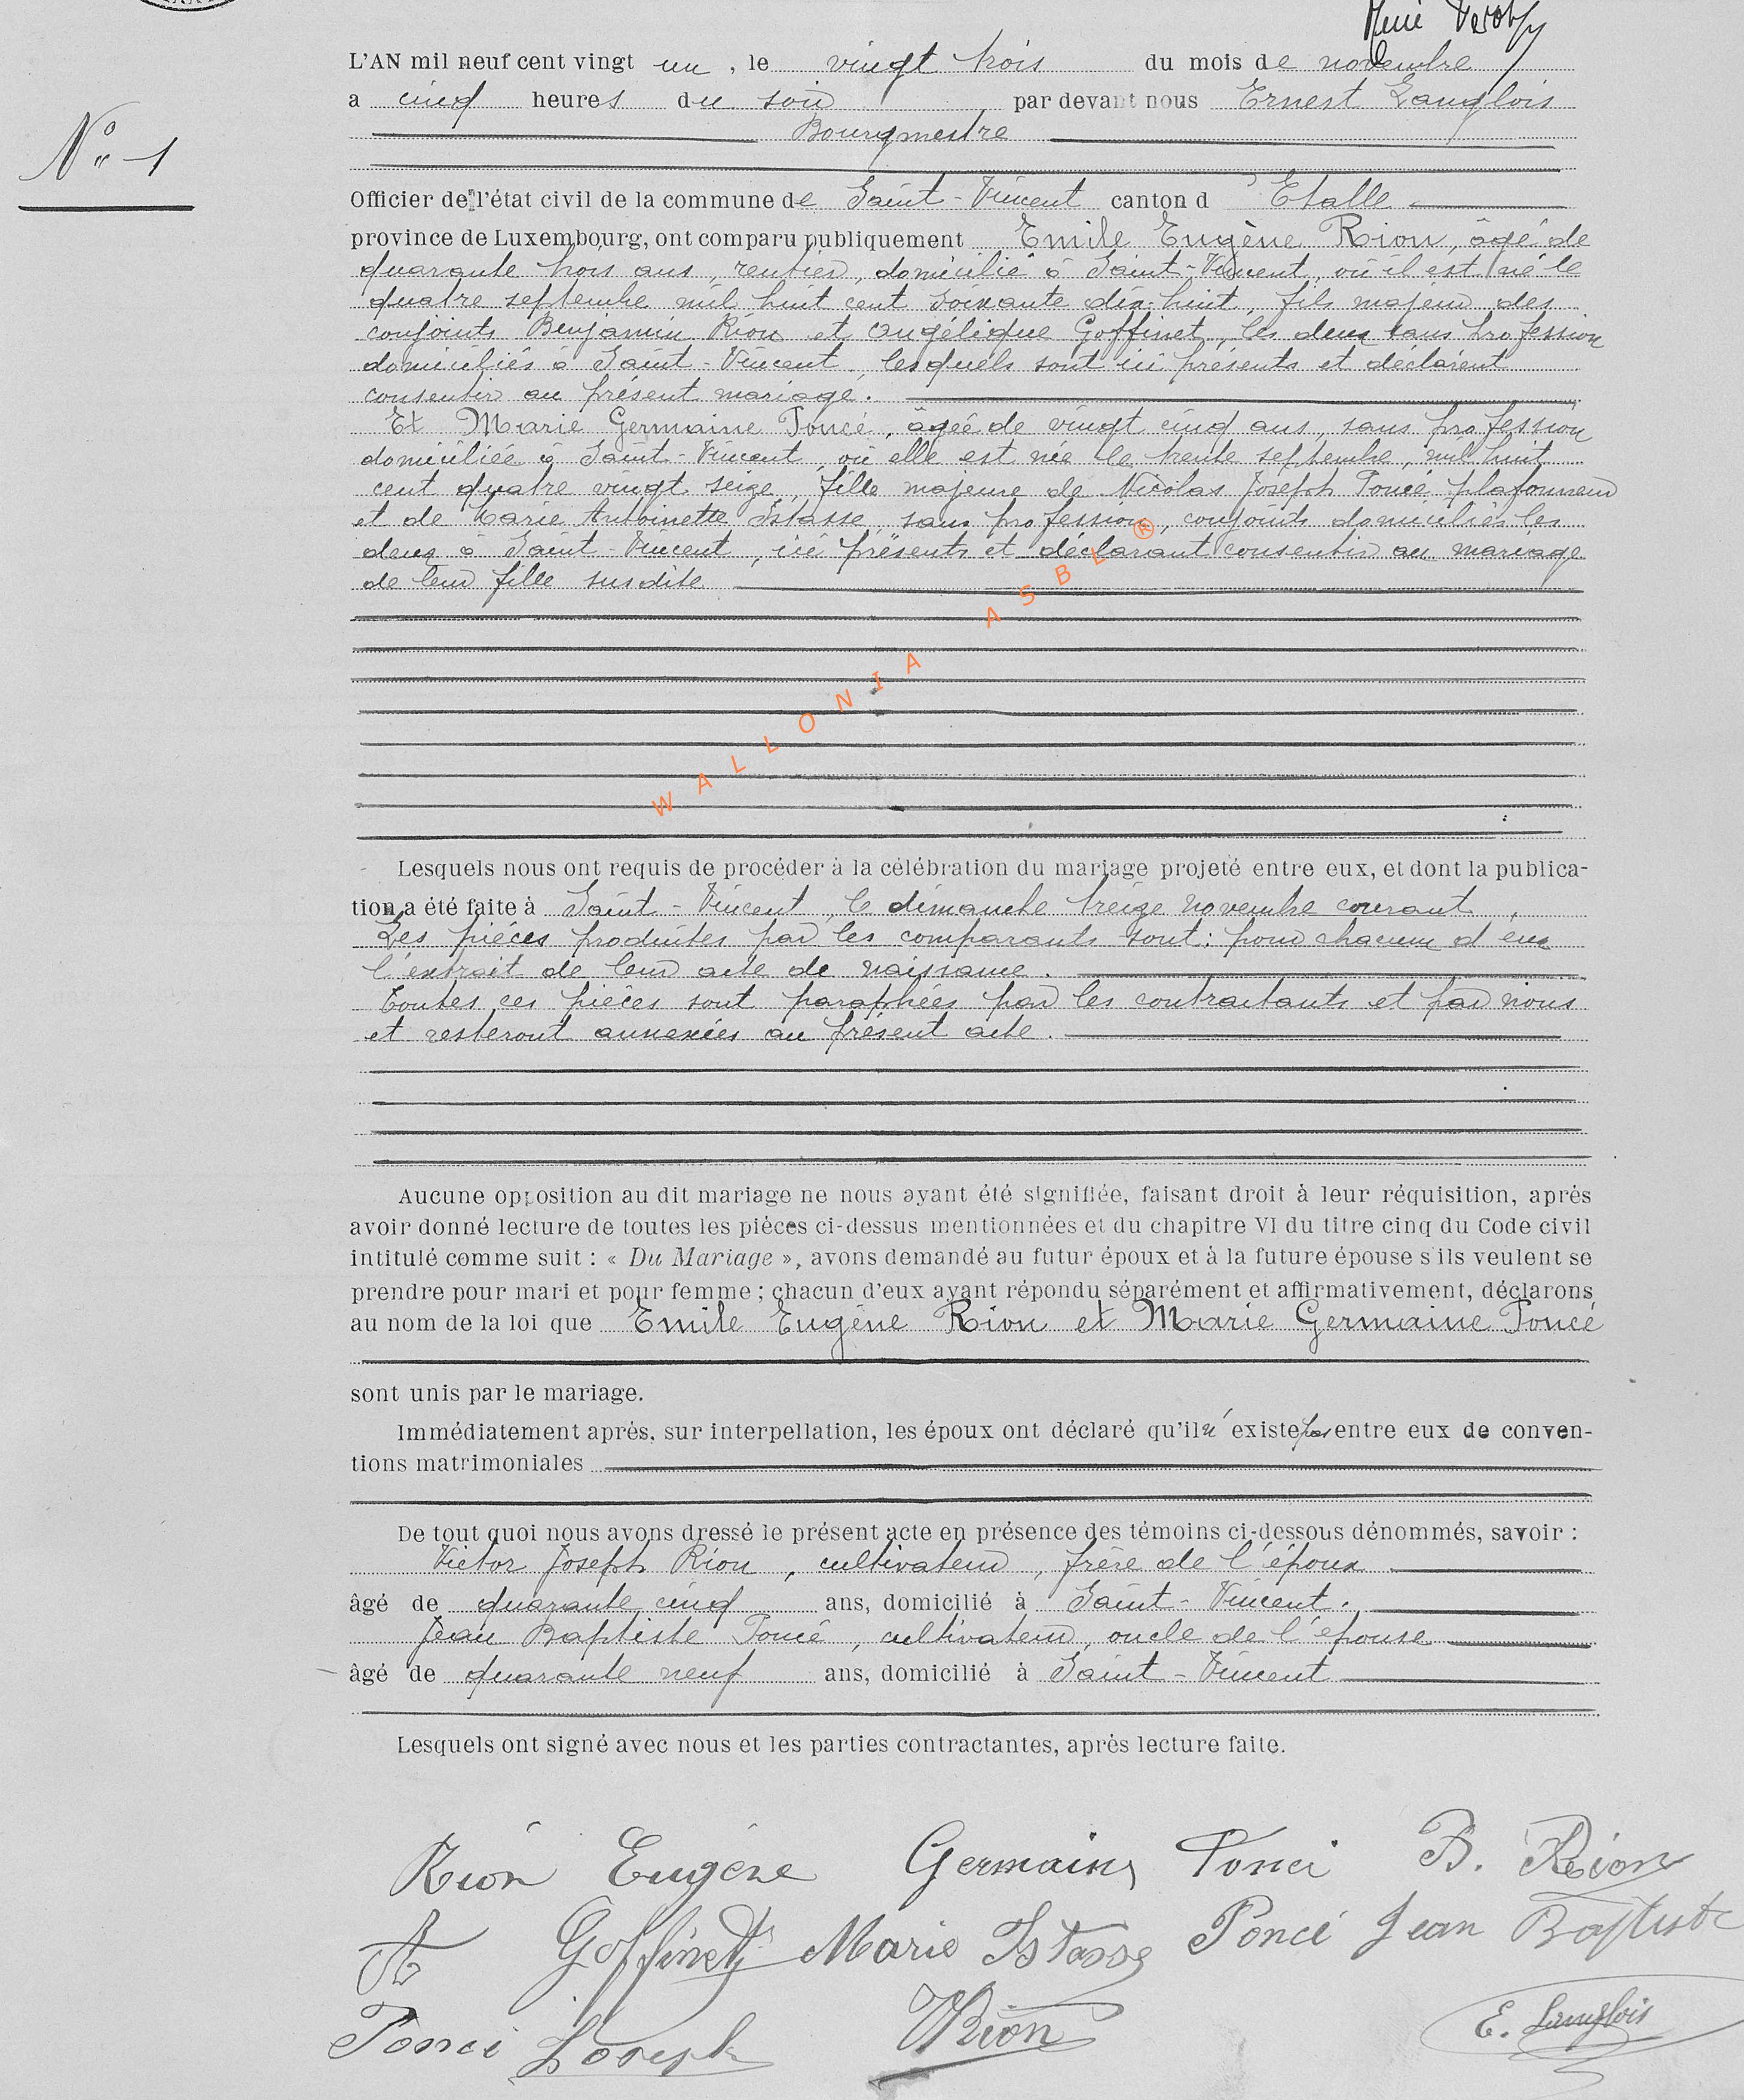 René
L'AN mil neuf cent vingt un, le vingt trois du mois de novembre
a cinq heures du soir par devant nous Ernest Langlois
Bourgmestre
N° 1
Officier de l'état civil de la commune de Saint-Vincent canton d'Etalle
province de Luxembourg, ont comparu publiquement Emile Eugène Rion, âgé de
quarante trois ans, rentier, domicilié à Saint-Vincent, où il est né le
quatre septembre mil huit cent soixante dix-huit, fils majeur des
conjoints Benjamin Rion et Angélique Goffinet, les deux sans profession
domiciliés à Saint-Vincent, lesquels sont ici présents et déclarent
consentir au présent mariage.
Et Marie Germaine Poncé, âgée de vingt cinq ans, sans profession
domiciliée à Saint-Vincent, où elle est née le trente septembre, mil huit
cent quatre vingt seize, fille majeure de Nicolas Joseph Poncé, plafonneur
et de Marie Antoinette Istasse, sans profession, conjoints domiciliés les
deux à Saint-Vincent, ici présents et déclarant consentir au mariage
de leur fille susdite
WALLONIA ASBL ®
Lesquels nous ont requis de procéder à la célébration du mariage projeté entre eux, et dont la publica-
tion a été faite à Saint-Vincent, le dimanche treize novembre courant,
Les pièces produites par les comparants sont: pour chacun d'eux
l'extrait de leur acte de naissance.
Toutes ces pièces sont paraphées par les contractants et par nous
et resteront annexées au présent acte.
Aucune opposition au dit mariage ne nous ayant été signifiée, faisant droit à leur réquisition, après
avoir donné lecture de toutes les pièces ci-dessus mentionnées et du chapitre VI du titre cinq du Code civil
intitulé comme suit : « Du Mariage », avons demandé au futur époux et à la future épouse s'ils veulent se
prendre pour mari et pour femme ; chacun d'eux ayant répondu séparément et affirmativement, déclarons
au nom de la loi que Emile Eugène Rion et Marie Germaine Poncé
sont unis par le mariage.
Immédiatement après, sur interpellation, les époux ont déclaré qu'il n'existe pas entre eux de conven-
tions matrimoniales
De tout quoi nous avons dressé le présent acte en présence des témoins ci-dessous dénommés, savoir :
Victor Joseph Rion, cultivateur, frère de l'époux
âgé de quarante cinq ans, domicilié à Saint-Vincent.
Jean Baptiste Poncé, cultivateur, oncle de l'épouse
âgé de quarante neuf ans, domicilié à Saint-Vincent
Lesquels ont signé avec nous et les parties contractantes, après lecture faite.
Rion Eugène Germaine Poncé B. Rion
A Goffinet Marie Istasse Poncé Jean Baptiste
Poncé Joseph VRion E. Langlois